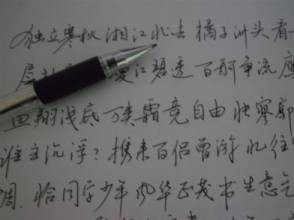 独立寒秋 湘江北去 橘子洲头 看
层 漫江碧透 百舸争流 鹰
鱼翔浅底 万类霜竞自由 怅寥廓
谁主沉浮？携来百侣曾游 忆往
稠 恰同学少年 风华正茂 书生意气